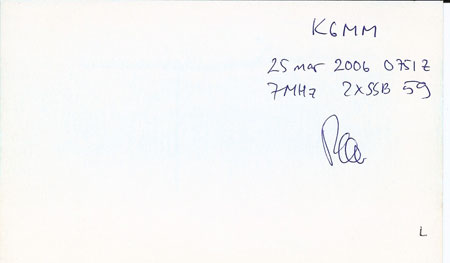 K6MM
25 mar 2006 0751Z
7MHz 2xSSB 59
L